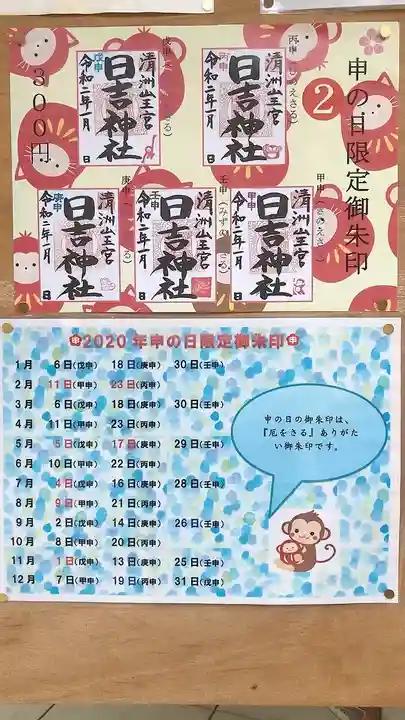 申の日限定御朱印
②
300円
丙申(ひのえさる)
清洲山王宮
日吉神社
令和二年一月 日
戊申
清洲山王宮
日吉神社
令和二年一月 日
甲申(きのえさる)
甲申
清洲山王宮
日吉神社
令和二年一月 日
壬申(みずのえさる)
壬申
清洲山王宮
日吉神社
令和二年一月 日
庚申
庚申
清洲山王宮
日吉神社
令和二年一月 日
申 2020年申の日限定御朱印 申
1月 6日(戊申) 18日(庚申) 30日(壬申)
2月 11日(甲申) 23日(丙申)
3月 6日(戊申) 18日(庚申) 30日(壬申)
4月 11日(甲申) 23日(丙申)
5月 5日(戊申) 17日(庚申) 29日(壬申)
6月 10日(甲申) 22日(丙申)
7月 4日(戊申) 16日(庚申) 28日(壬申)
8月 9日(甲申) 21日(丙申)
9月 2日(戊申) 14日(庚申) 26日(壬申)
10月 8日(甲申) 20日(丙申)
11月 1日(戊申) 13日(庚申) 25日(壬申)
12月 7日(甲申) 19日(丙申) 31日(戊申)
申の日の御朱印は、
『厄をさる』ありがた
い御朱印です。